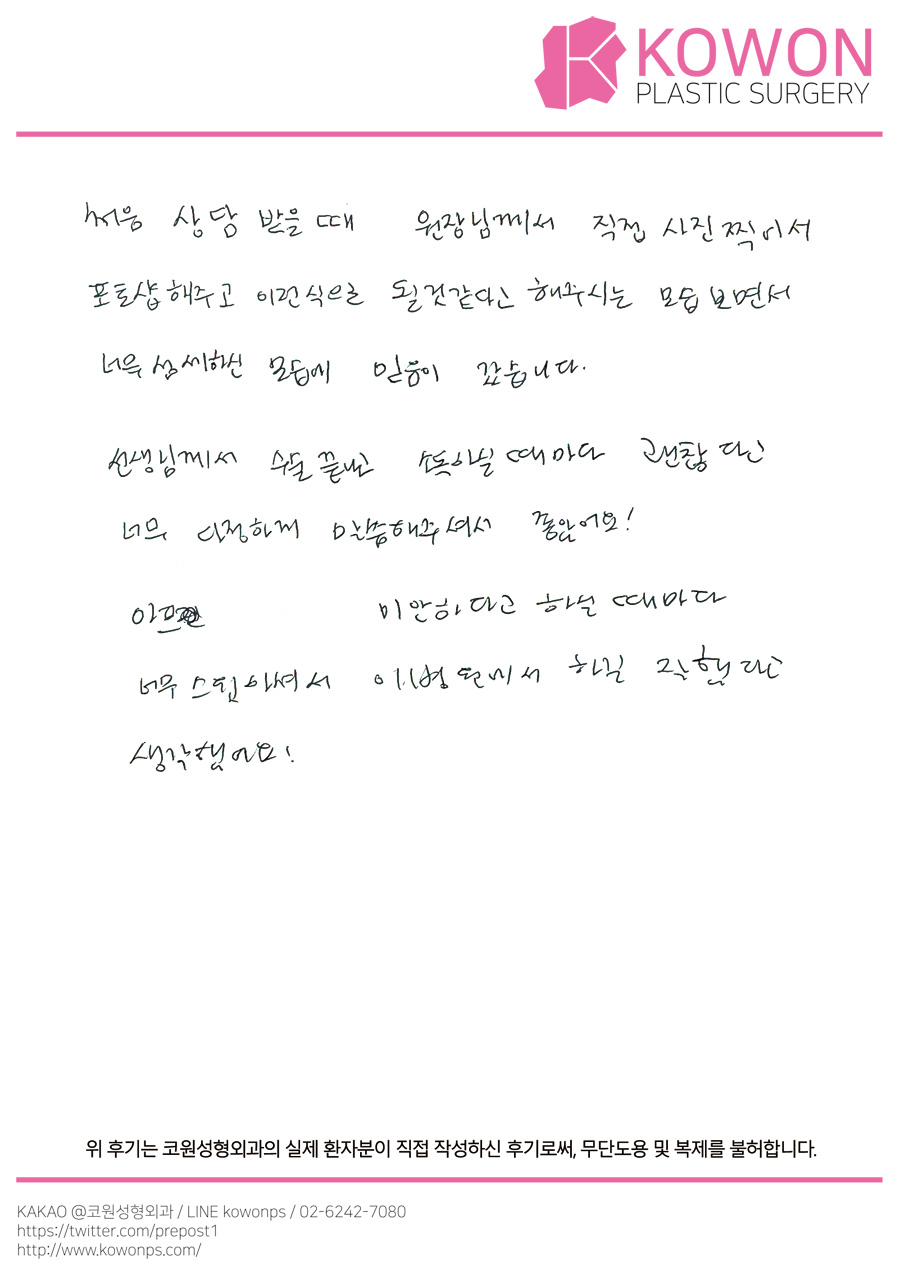 KOWON
PLASTIC SURGERY
처음 상담 받을 때 원장님께서 직접 사진 찍어서
포토샵해주고 이런식으로 될것같다고 해주시는 모습 보면서
너무 섬세하신 모습에 믿음이 갔습니다.
선생님께서 수술 끝나고 소독하실 때마다 괜찮다고
너무 다정하게 말씀해주셔서 좋았어요!
미안하다고 하실 때마다
너무 스윗하셔서 이 병원에서 하길 잘했다고
생각했어요!
위 후기는 코원성형외과의 실제 환자분이 직접 작성하신 후기로써, 무단도용 및 복제를 불허합니다.
KAKAO @코원성형외과 / LINE kowonps / 02-6242-7080
https://twitter.com/prepost1
http://www.kowonps.com/